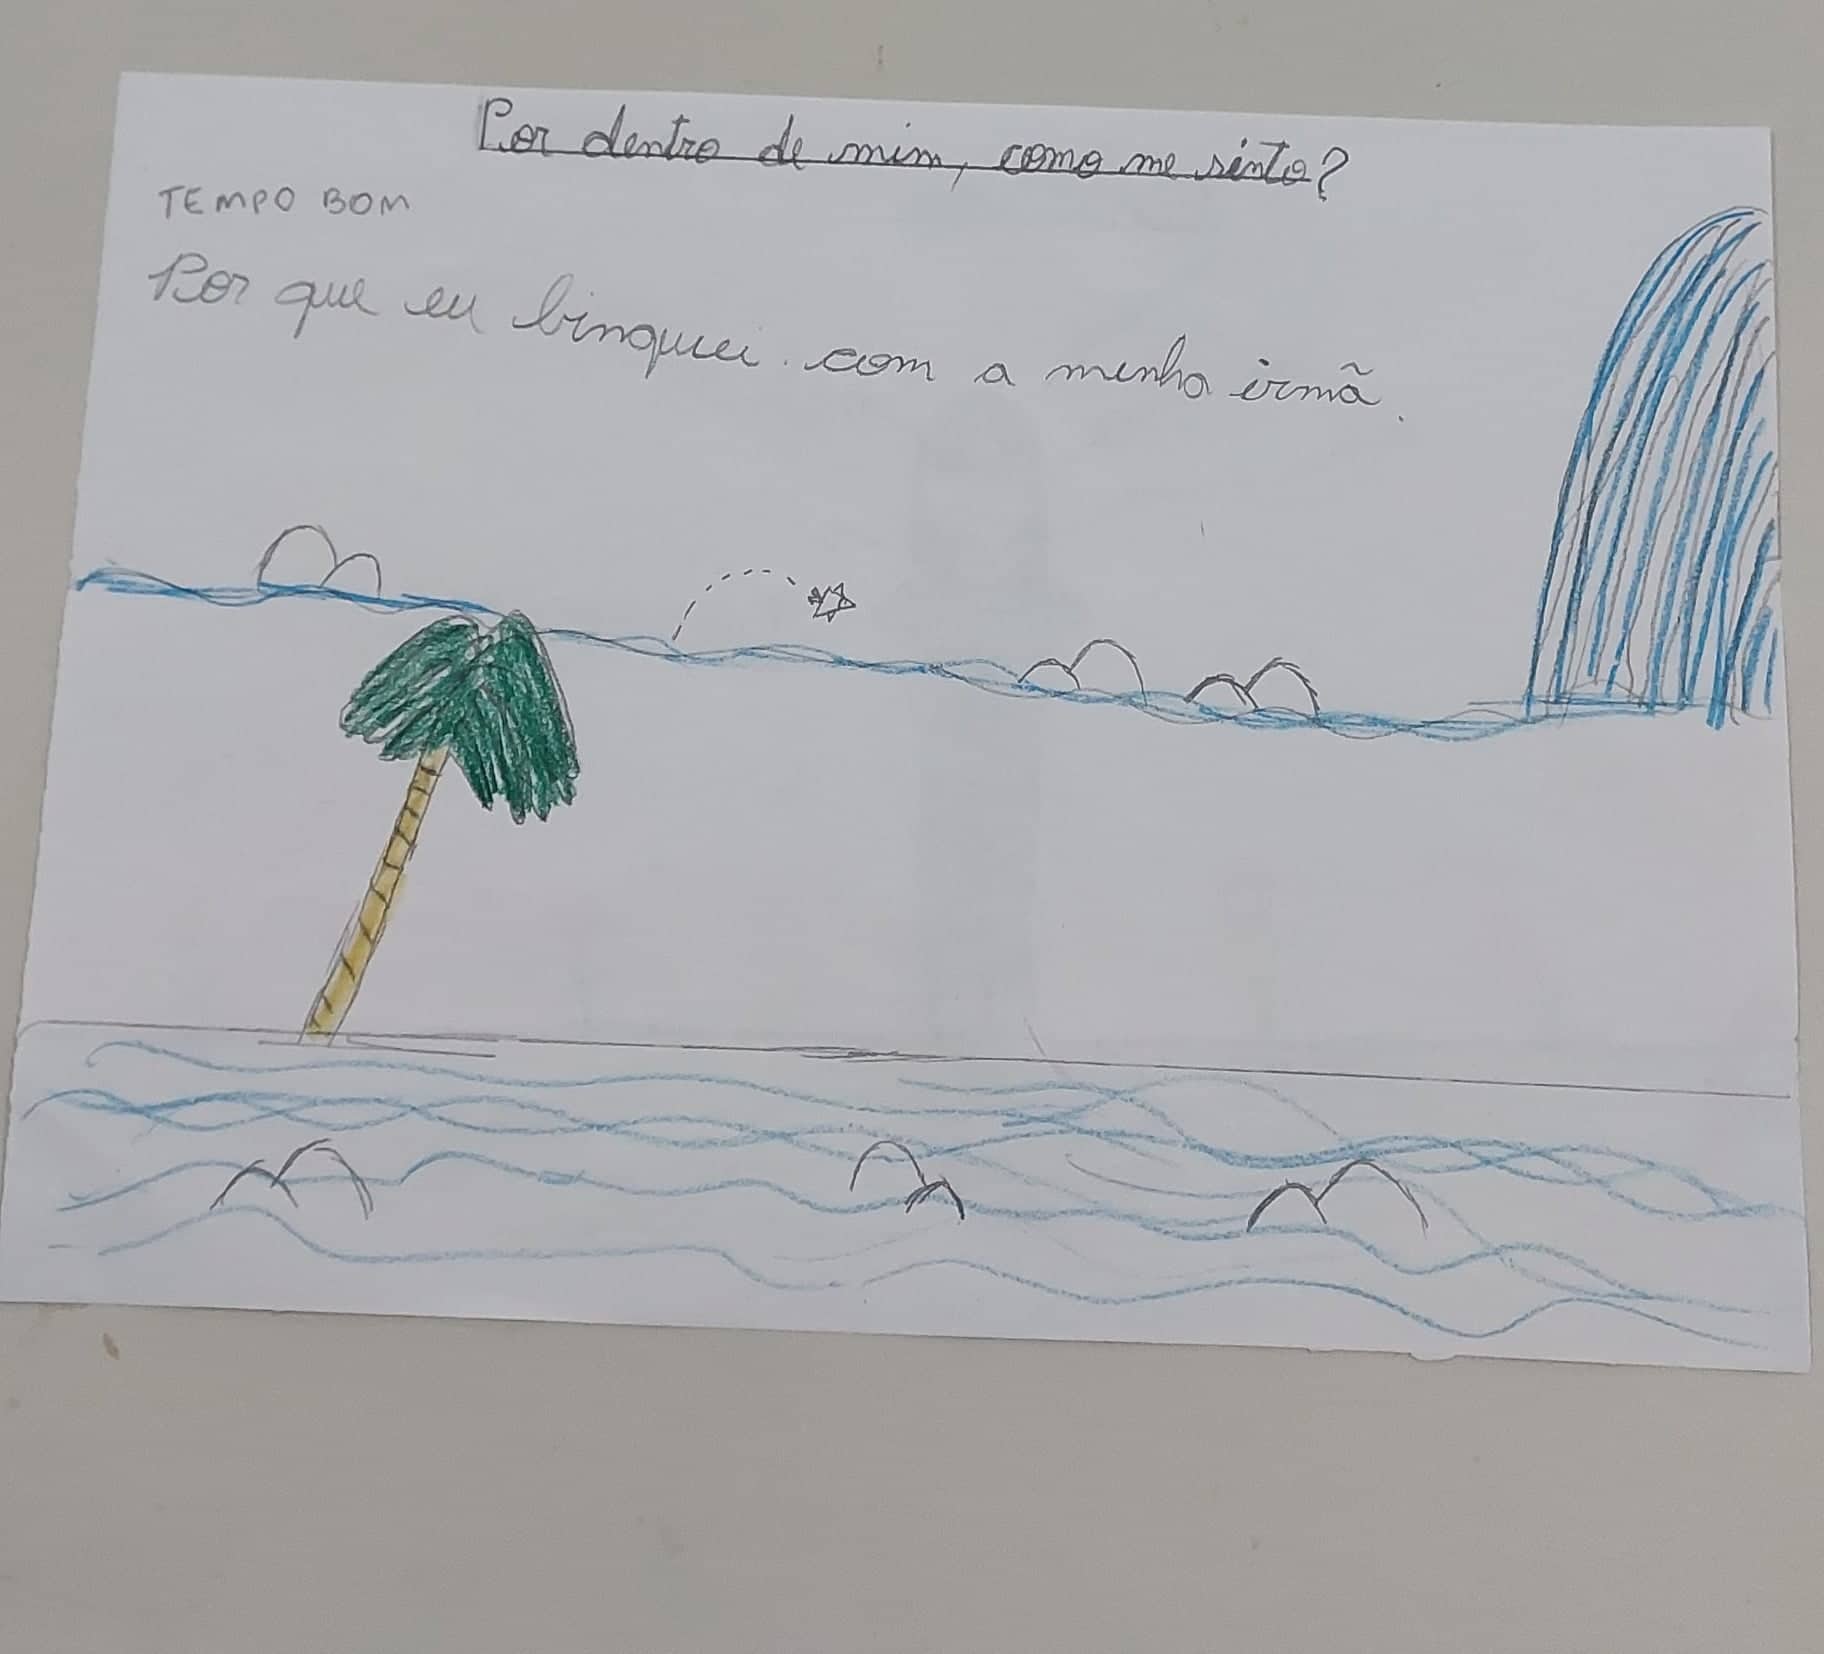 Por dentro de mim, como me sinto?
TEMPO BOM
Por que eu binquei. com a minha irmã.